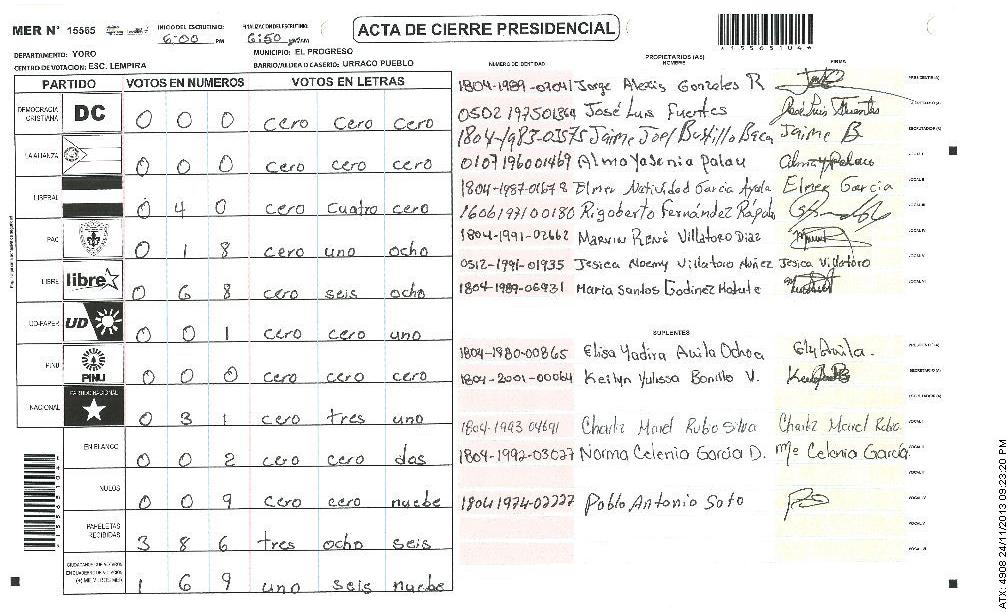 MER N° 15565 INICIO DEL ESCRUTINIO: 6:00 PM FINALIZACION DEL ESCRUTINIO: 6:50 ACTA DE CIERRE PRESIDENCIAL
DEPARTAMENTO: YORO MUNICIPIO: EL PROGRESO
CENTRO DE VOTACION: ESC. LEMPIRA BARRIO/ALDEA O CASERIO: URRACO PUEBLO
PARTIDO VOTOS EN NUMEROS VOTOS EN LETRAS
DEMOCRACIA CRISTIANA DC 0 0 0 cero cero cero
LA ALIANZA 0 0 0 cero cero cero
LIBERAL 0 4 0 cero cuatro cero
PAC 0 1 8 cero uno ocho
LIBRE libre 0 6 8 cero seis ocho
UD-FAPER UD 0 0 1 cero cero uno
PINU PINU 0 0 0 cero cero cero
NACIONAL PARTIDO NACIONAL 0 3 1 cero tres uno
EN BLANCO 0 0 2 cero cero dos
NULOS 0 0 9 cero cero nuebe
PAPELETAS RECIBIDAS 3 8 6 tres ocho seis
1 6 9 uno seis nuebe
NUMERO DE IDENTIDAD PROPIETARIOS (AS) NOMBRE FIRMA
1804-1989-02041 Jorge Alexis Gonzales R
0502 197501344 José Luis Fuertes José Luis Fuertes
1804-1983-03575 Jaime Joel Bustillo Baca Jaime B
0107196001469 Alma Yasenia Palau Alma y Palau
1804-1987-01678 Elmer Natividad Garcia Ayala Elmer Garcia
1606197100180 Rigoberto Fernández Rápalo
1804-1991-02662 Marvin René Villatoro Diaz
0512-1991-01935 Jesica Noemy Villatoro Nuñez Jesica Villatoro
1804-1989-06931 Maria Santos Godinez Matute
SUPLENTES
1804-1980-00865 Elisa Yadira Avila Ochoa Ely Avila.
1804-2001-00064 Keilyn Yulissa Bonillo V.
1804-1993 04691 Charliz Marel Rubo Silva Charliz Marel Rubo
1804-1992-03027 Norma Celenia Garcia D. Ma Celenia García
1804 1974-02227 Pablo Antonio Soto
ATX: 4908 24/11/2013 09:23:20 PM